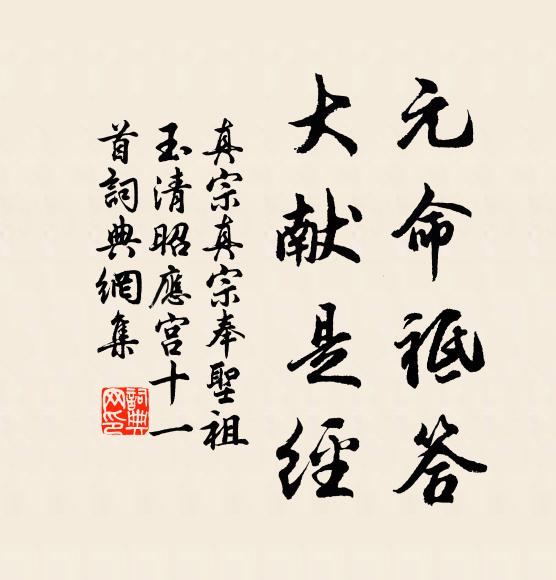 元命祗答
大献是經
真宗真宗奉聖祖
玉清昭應宮十一
首詞典網集
詞典
网印